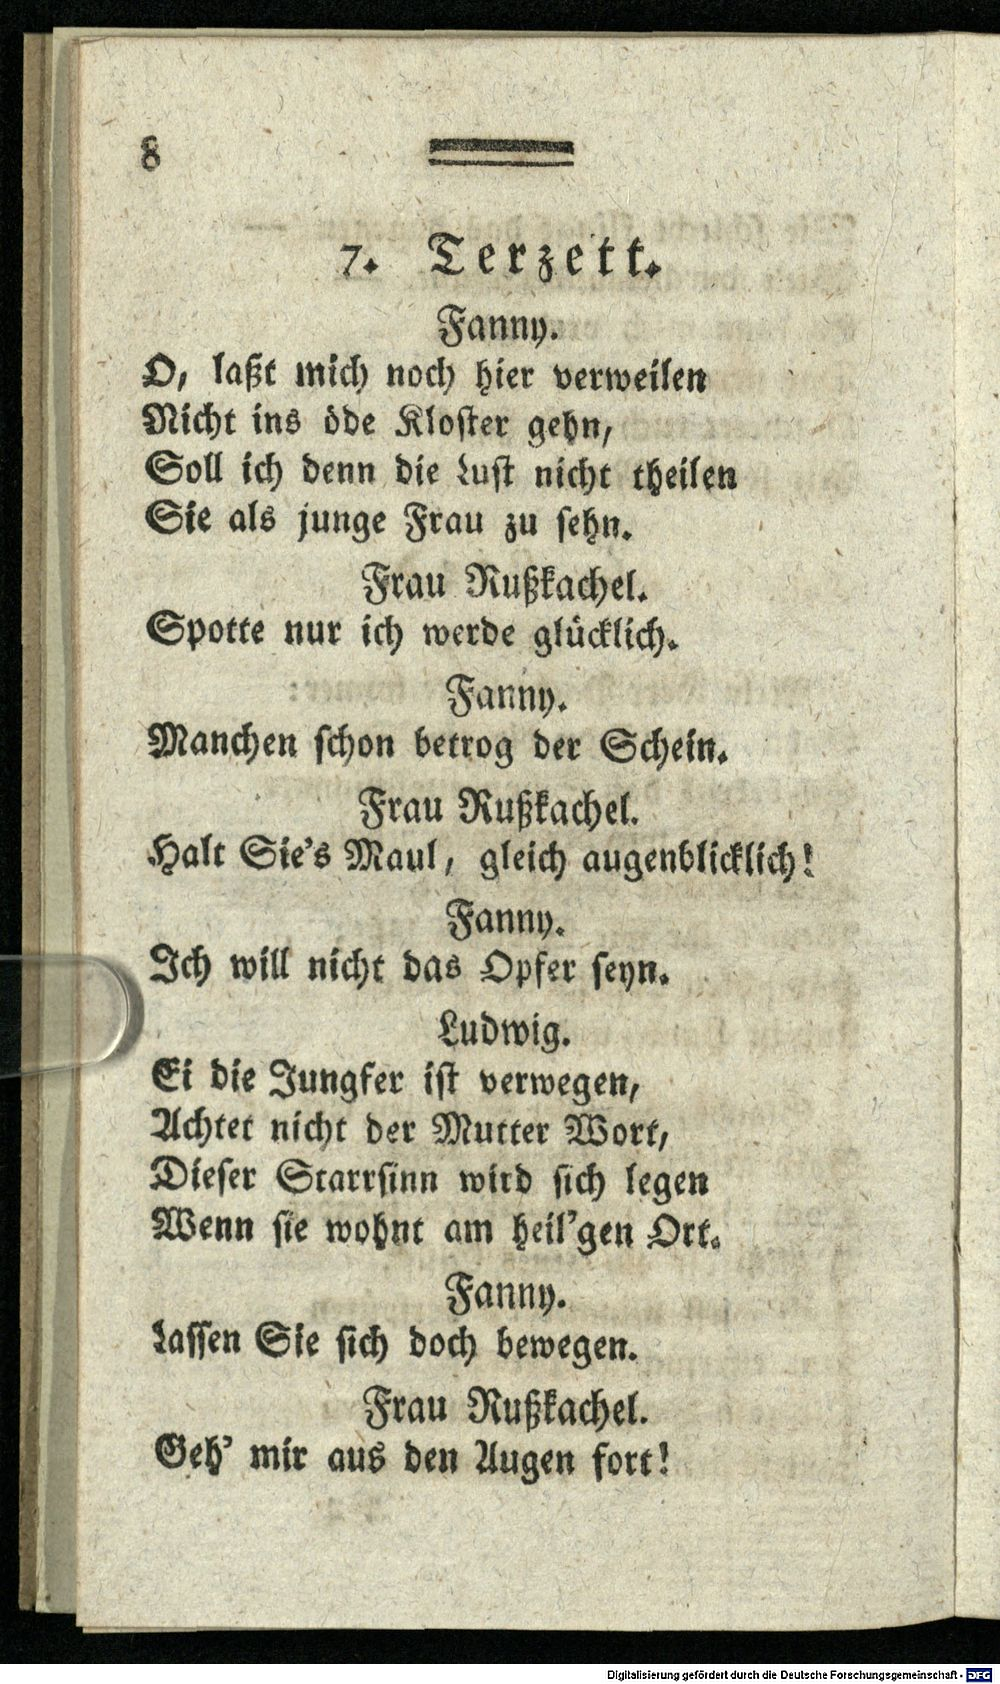 8
7. Terzett.
Fanny.
O, laßt mich noch hier verweilen
Nicht ins öde Kloster gehn,
Soll ich denn die Lust nicht theilen
Sie als junge Frau zu sehn.
Frau Rußkachel.
Spotte nur ich werde glücklich.
Fanny.
Manchen schon betrog der Schein.
Frau Rußkachel.
Halt Sie's Maul, gleich augenblicklich!
Fanny.
Ich will nicht das Opfer seyn.
Ludwig.
Ei die Jungfer ist verwegen,
Achtet nicht der Mutter Wort,
Dieser Starrsinn wird sich legen
Wenn sie wohnt am heil'gen Ort.
Fanny.
Lassen Sie sich doch bewegen.
Frau Rußkachel.
Geh' mir aus den Augen fort!
Digitalisierung gefördert durch die Deutsche Forschungsgemeinschaft - DFG